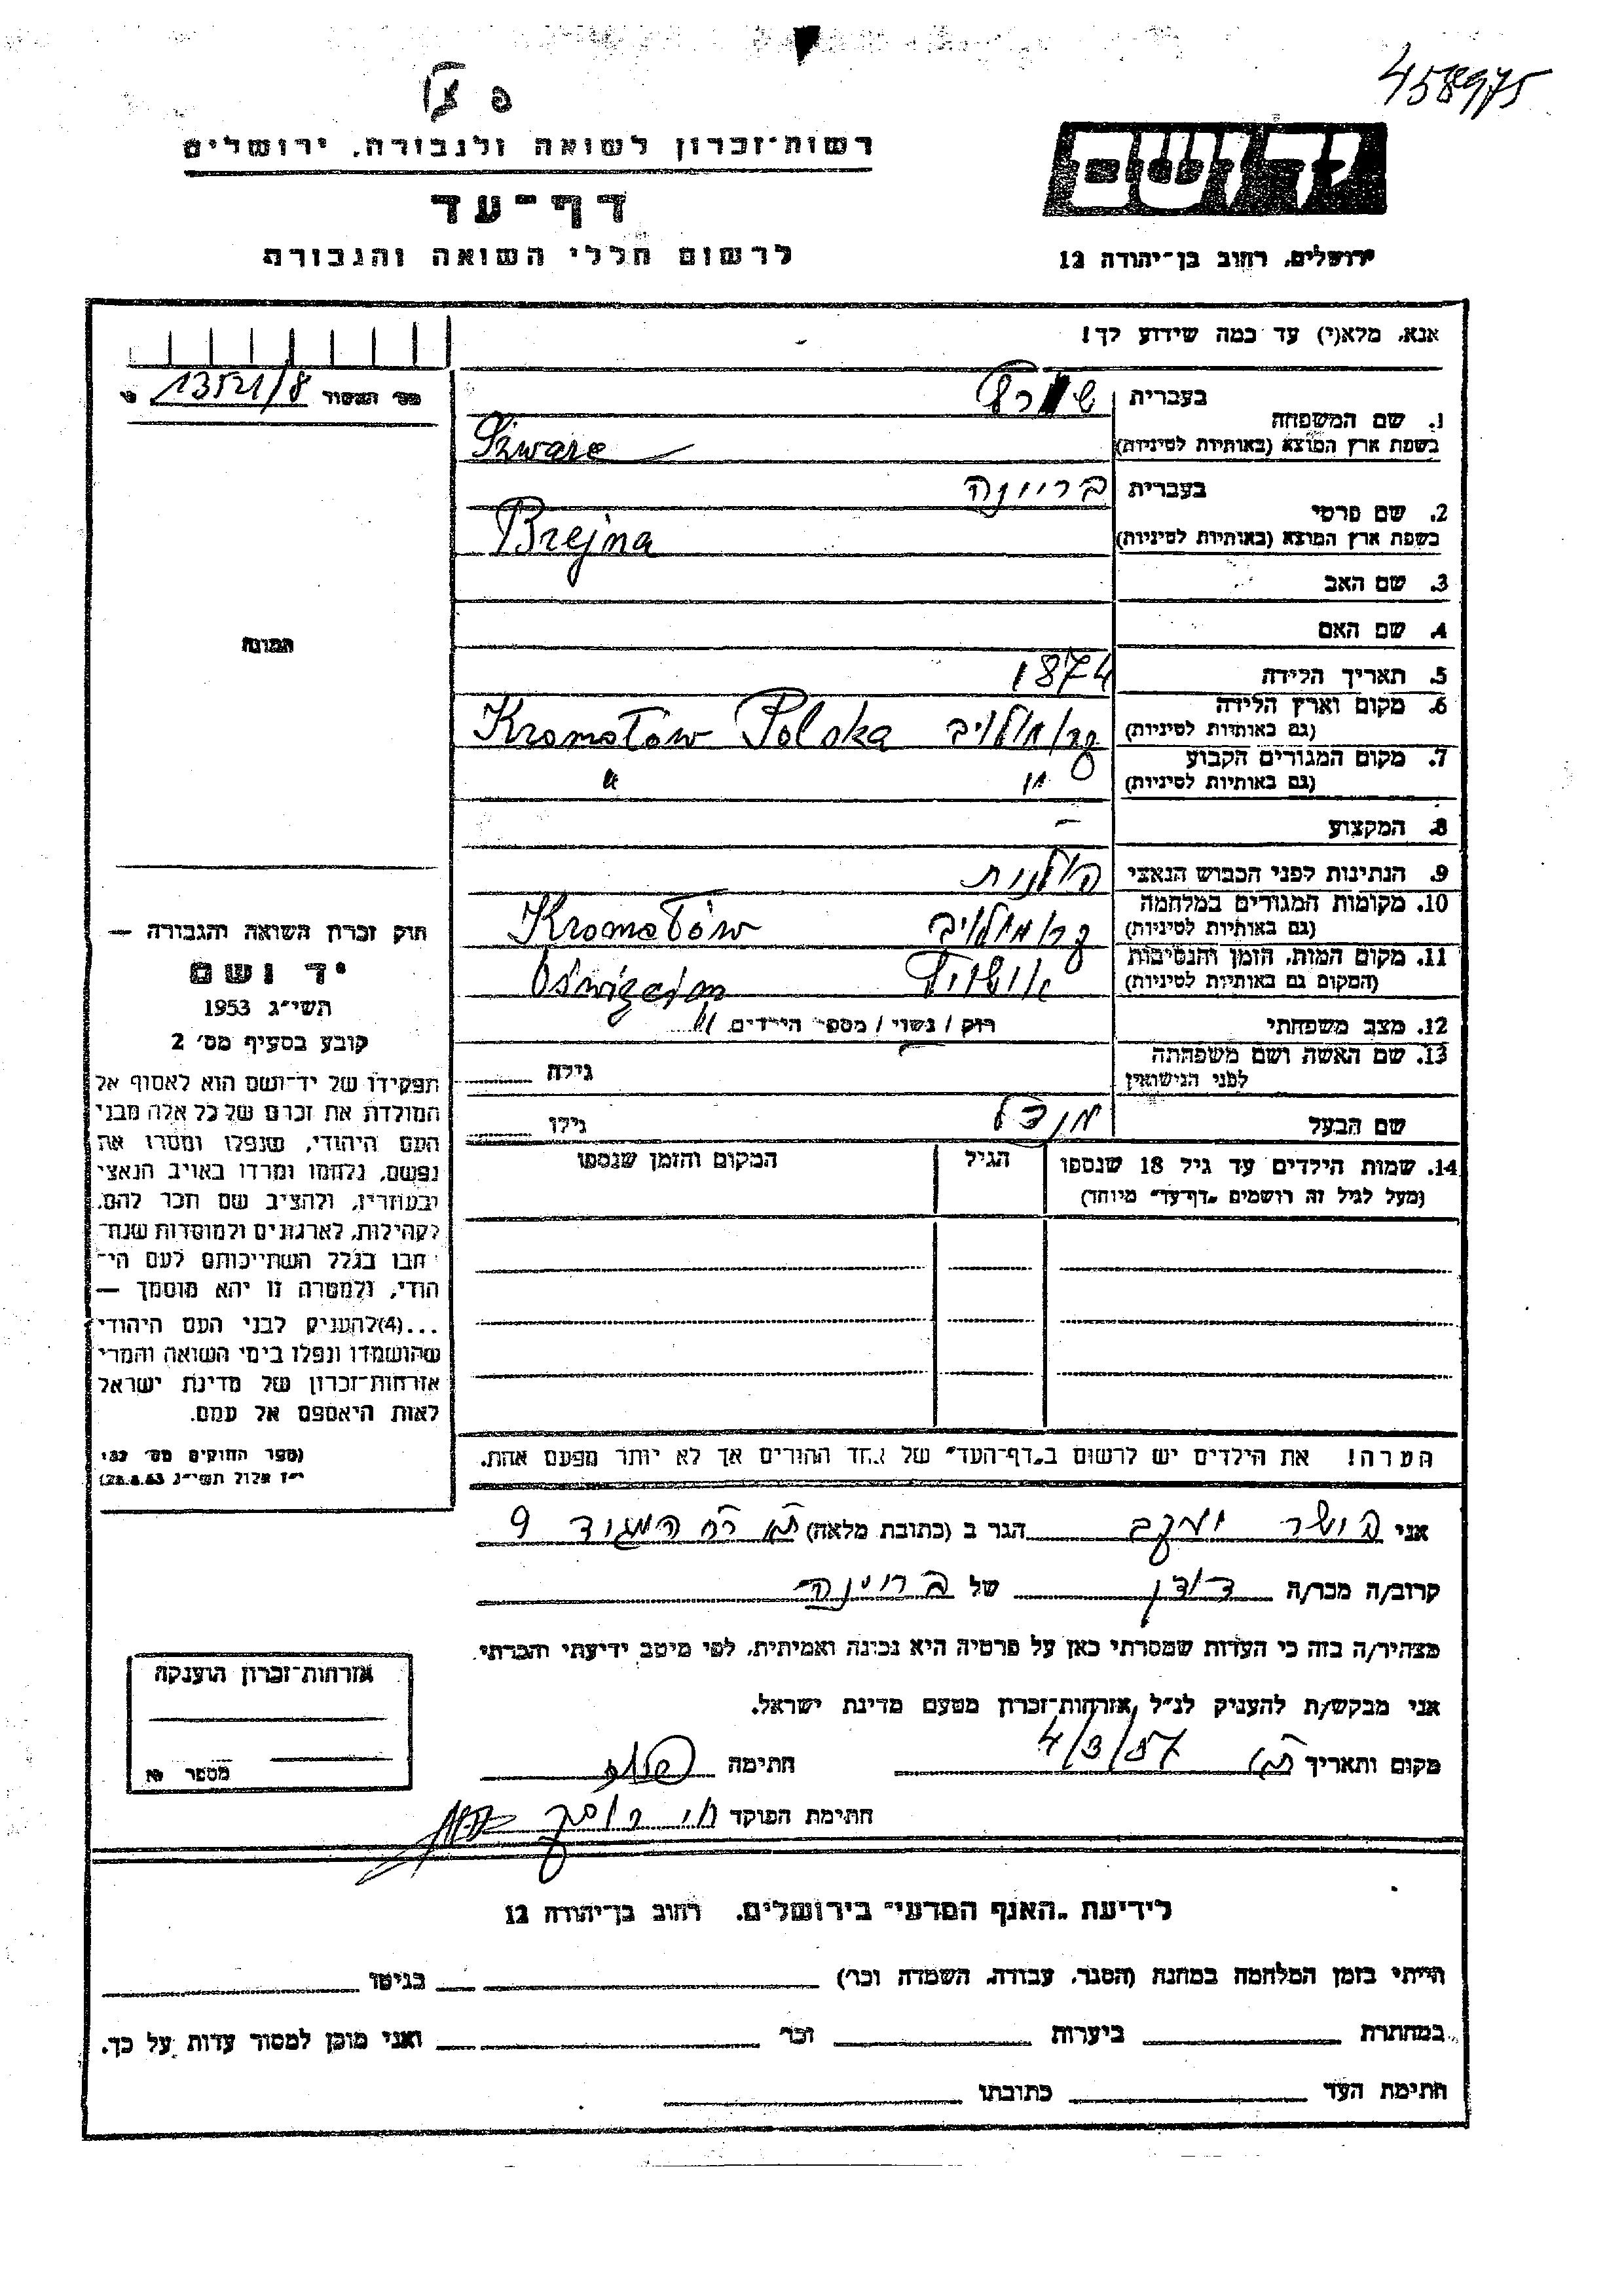 458975
רשות־זכרון לשואה ולגבורה, ירושלים
דף־עד
לרשום חללי השואה והגבורה
ירושלים, רחוב בן־יהודה 12
אנא, מלא(י) עד כמה שידוע לך!
מס׳ 13521/8
1. שם המשפחה
בעברית שורץ
בשפת ארץ המוצא (באותיות לטיניות) Szware
2. שם פרטי
בעברית בריינה
בשפת ארץ המוצא (באותיות לטיניות) Brejna
3. שם האב
4. שם האם
5. תאריך הלידה 1874
6. מקום וארץ הלידה
(גם באותיות לטיניות) Kromołow Polska
7. מקום המגורים הקבוע
(גם באותיות לטיניות) " "
8. המקצוע –
9. הנתינות לפני הכבוש הנאצי פולנית
10. מקומות המגורים במלחמה
(גם באותיות לטיניות) Kromołów
11. מקום המות, הזמן והנסיבות
(המקום גם באותיות לטיניות)
12. מצב משפחתי רוק / נשוי / מספר הילדים
13. שם האשה ושם משפחתה
לפני הנישואין – גילה
שם הבעל מנדל גילו
14. שמות הילדים עד גיל 18 שנספו
(מעל לגיל זה רושמים „דף־עד״ מיוחד)
הגיל
המקום והזמן שנספו
הערה! את הילדים יש לרשום ב„דף־העד״ של אחד ההורים אך לא יותר מפעם אחת.
התמונה
חוק זכרון השואה והגבורה —
יד ושם
תשי״ג 1953
קובע בסעיף מס׳ 2
תפקידו של יד־ושם הוא לאסוף אל
המולדת את זכרם של כל אלה מבני
העם היהודי, שנפלו ומסרו את
נפשם, נלחמו ומרדו באויב הנאצי
ובעוזריו, ולהציב שם וזכר להם,
לקהילות, לארגונים ולמוסדות שנח־
רבו בגלל השתייכותם לעם הי־
הודי, ולמטרה זו יהא מוסמך —
...(4) להעניק לבני העם היהודי
שהושמדו ונפלו בימי השואה והמרי
אזרחות־זכרון של מדינת ישראל
לאות היאספם אל עמם.
(ספר החוקים מס׳ 132,
י״ז אלול תשי״ג 28.8.53)
אני יעקב הגר ב (כתובת מלאה) ת״א רח׳ המגיד 9
קרוב/ה מכר/ה דודן של בריינה
מצהיר/ה בזה כי העדות שמסרתי כאן על פרטיה היא נכונה ואמיתית, לפי מיטב ידיעתי והכרתי.
אני מבקש/ת להעניק לנ״ל אזרחות־זכרון מטעם מדינת ישראל.
מקום ותאריך ת״א 4/3/57 חתימה
חתימת הפוקד
אזרחות־זכרון הוענקה
מספר
לידיעת „האגף המדעי״ בירושלים, רחוב בן־יהודה 12
הייתי בזמן המלחמה במחנה (הסגר, עבודה, השמדה וכו׳) בגיטו
במחתרת ביערות וכו׳ ואני מוכן למסור עדות על כך.
חתימת העד כתובתו